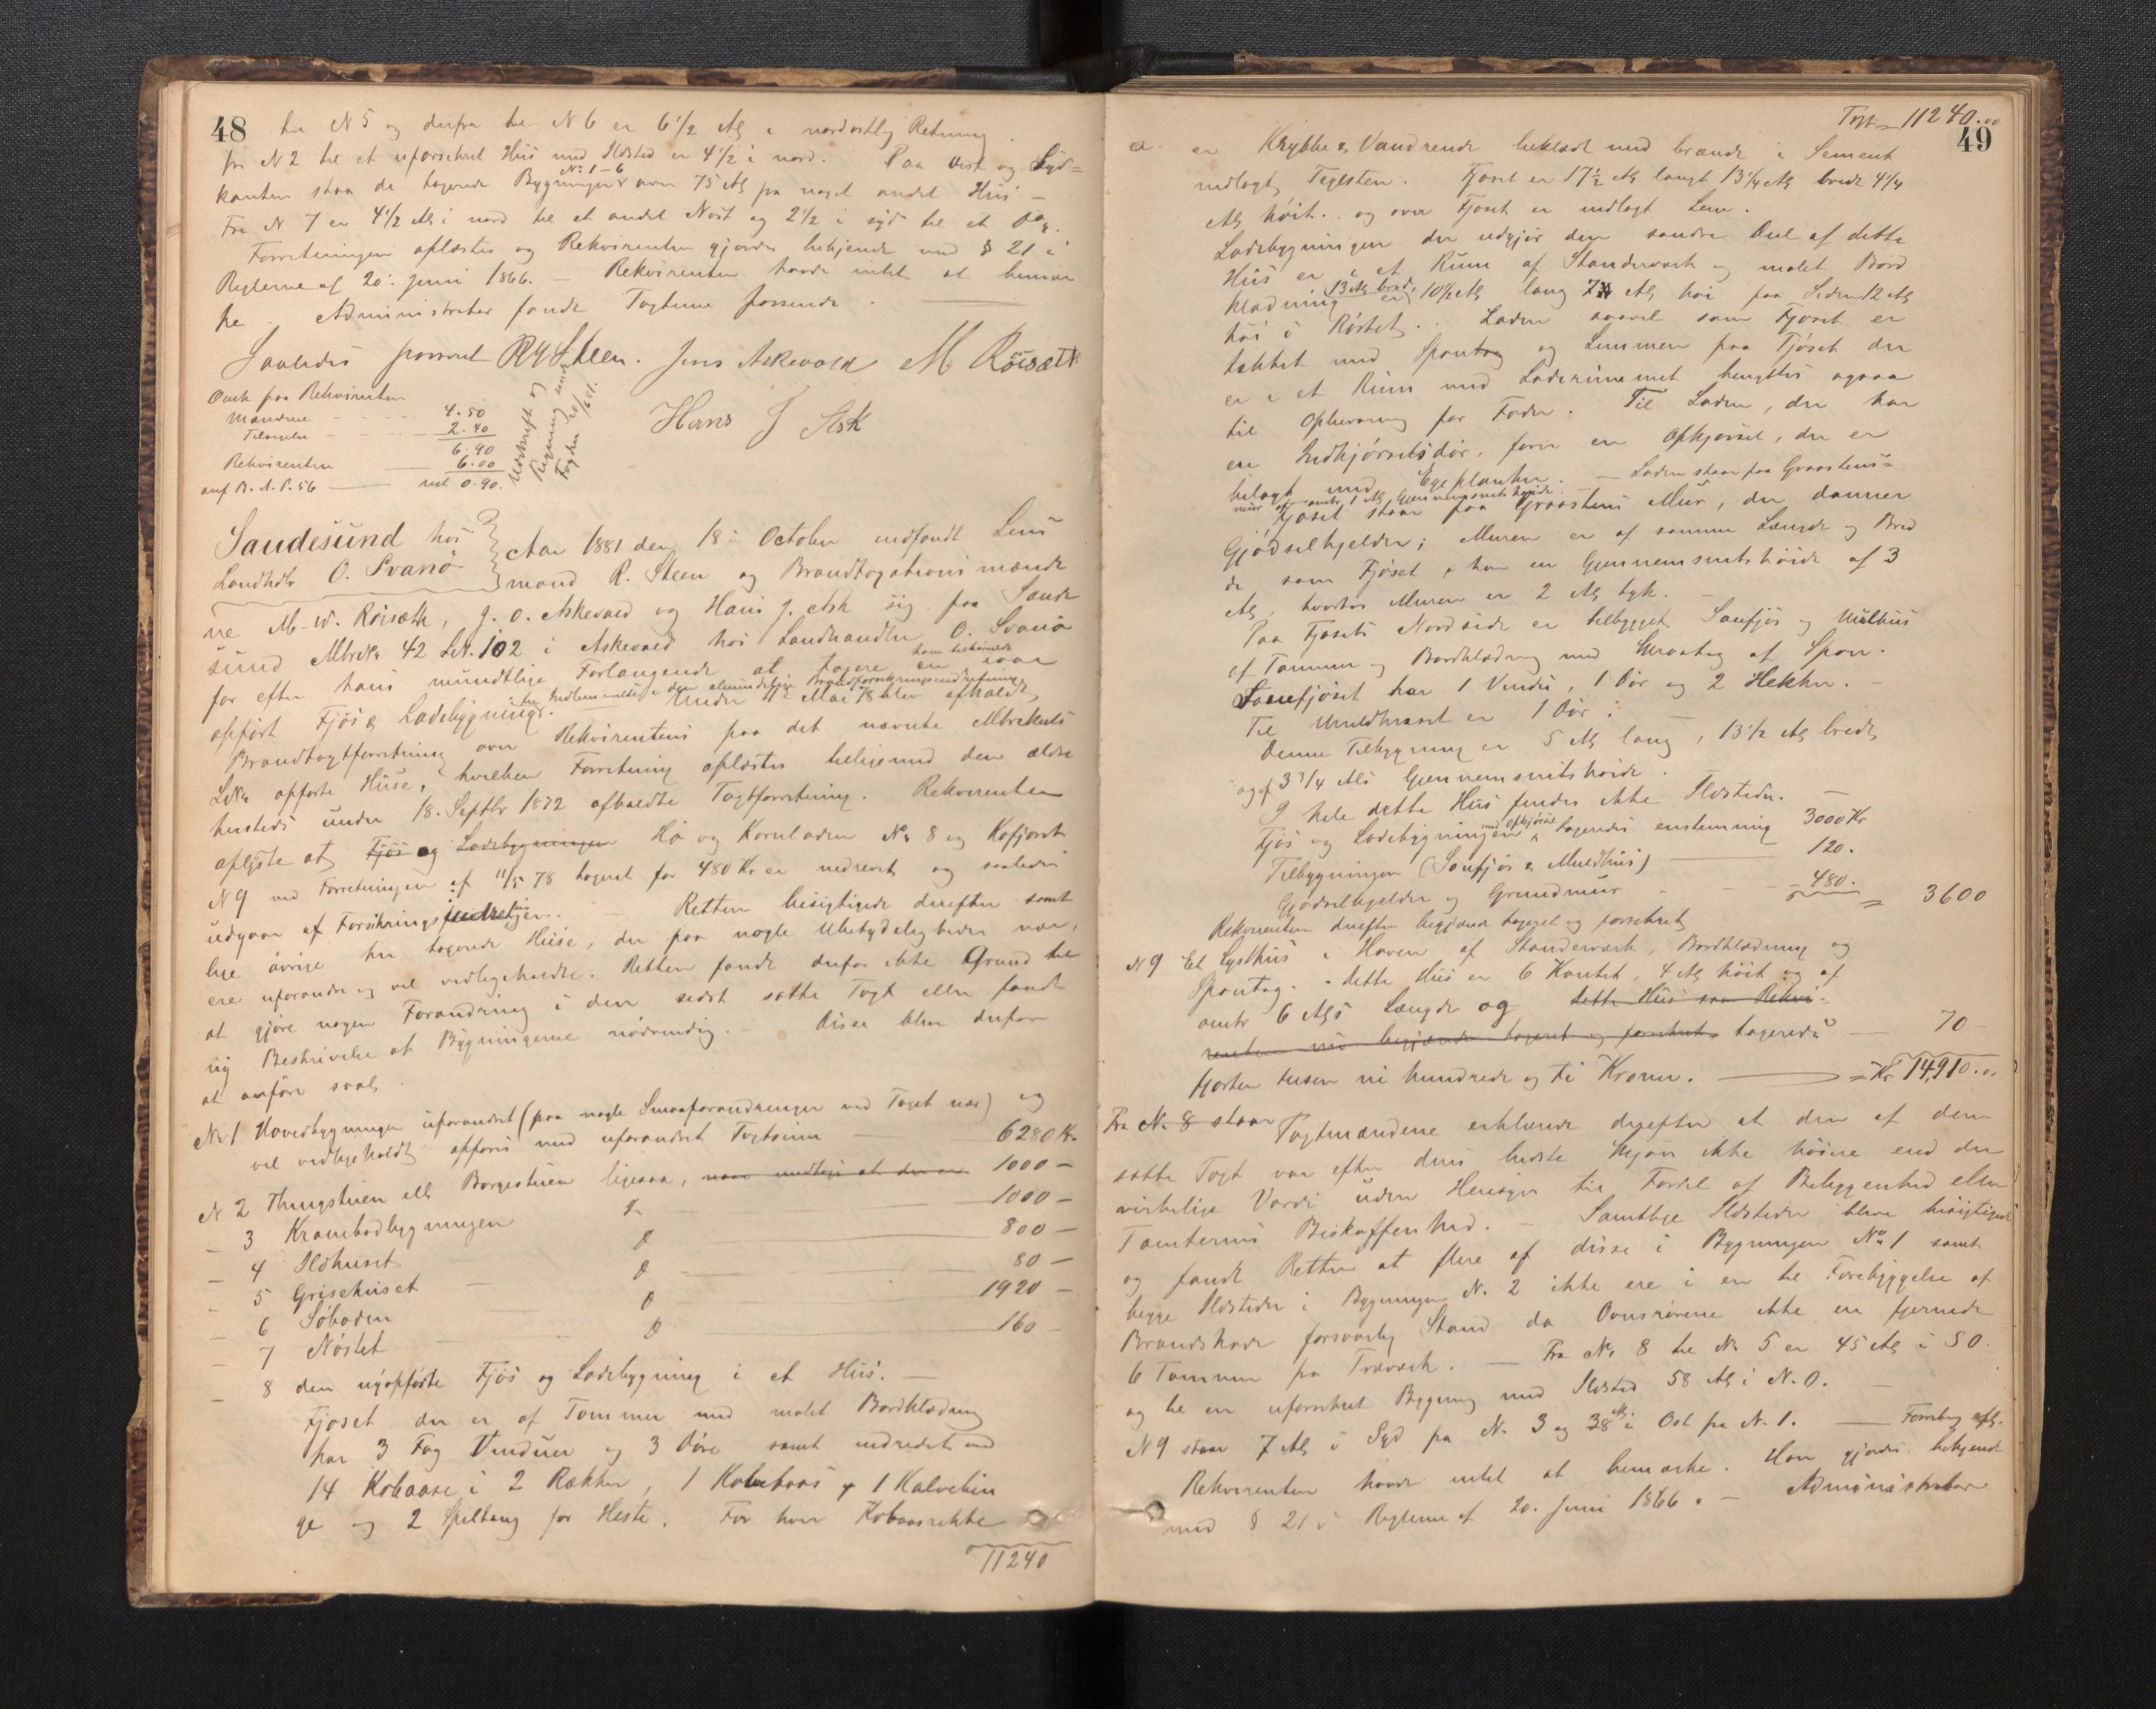 48
til N 5 og derfra til N 6 er 6 1/2 Al i nordostlig Retning
fra N 2 til et uforsikret Hus med Ildsted er 4 1/2 i nord. Paa Vest og Syd-
kanten staa de taxerede Bygninger No 1-6 over 75 Al fra noget andet Hus -
Fra N 7 er 4 1/2 Al i nord til et andet Nöst og 2 1/2 i syd til et
Forretningen oplæstes og Rekvirenten gjordes bekjendt med § 21 i
Reglerne af 20. Juni 1866. - Rekvirenten havde intet at bemær
ke. Administrator fandt Taxterne passende.
Saaledes passeret R Steen. Jens Askevold M Röisæth
Hans J Ask
Omk paa Rekvirenten
Mændene 4.50
2.40
6.90
Rekvirenten 6.00
anf B. A. P. 56 rest 0.90.
Udskrift og
Regning sendt
Fogden
Sandesund hos
Landhdlr O. Svanö
Aar 1881 den 18de October indfandt Lens
mand R. Steen og Brandtaxationsmænde
ne M. W. Röisæth, J. O. Askevold og Hans J. Ask sig paa Sande
sund MtrNr 42 LNr. 102 i Askevold hos Landhandler O. Svanö
for efter hans mundtlige Forlangende at taxere en som bekvemt
opfört Fjös & Ladebygning til Indlemmelse i den almindelige Brandforsikringsindretning
Under 11 Mai 78 blev afholdt
Brandtaxtforretning over Rekvirentens paa det nævnte Mtrikuls
LNr opförte Huse, hvilken Forretning oplæstes tilligemed den ældre
hersteds under 18. Septbr 1872 afholdte Taxtforretning. Rekvirenten
oplyste at Fjös og Ladebygningen Hö og Kornladen No 8 og Kofjöset
N 9 ved Forretningen af 11/5 78 taxeret for 480 Kr er nedrevet og saaledes
udgaar af Forsikringsindretningen. Retten besigtigede derefter samt
lige övrige her taxerede Huse, der paa nogle Ubetydeligheder nær,
ere uforandrede og vel vedligeholdte. Retten fandt derfor ikke Grund til
at gjöre nogen Forandring i den sidst satte Taxt eller fandt
ny Beskrivelse af Bygningerne nödvendig. - Disse blev derfor
at anföre saal.
No 1 Hovedbygningen uforandret (paa nogle Smaaforandringer ved Taget nær) og
vel vedligeholdt opföres med uforandret Taxtsum 6280 Kr.
N 2 Thingstuen ell Borgestuen ligesaa, 1000 -
- 3 Krambodbygningen 1000 -
- 4 Ildhuset 800 -
- 5 Grisehuset 80 -
- 6 Söboden 1920 -
- 7 Nöstet 160 -
- 8 den nyopförte Fjös og Ladebygning i et Hus. -
Fjöset der er af Tömmer med malet Bordklædning
har 3 Fag Vinduer og 3 Döre samt indredet med
14 Kobaase i 2 Rækker, 1 Kalvebaas & 1 Kalvebin
ge og 2 Spiltaug for Heste. For hver Kobaasrække
11240
Taxt 11240.00
49
er Krybbe & Vandrende beklædt med brændt i Sement
indlagt Teglsten. Fjöset er 17 1/2 Al langt 13 1/4 Al bredt 4 1/4
Al höit. og over Fjöset er indlagt Lem.
Ladebygningen der udgjör den söndre Deel af dette
Hus er i et Rum af Standerværk og malet Bord
klædning er 13 Al bred, 10 1/2 Al lang 7 Al höi paa Siden 12 Al
höi i Röstet. Laden saavel som Fjöset er
tækket med Spontag og Lemmen paa Fjöset der
er i et Rum med Laderummet benyttes ogsaa
til Opbevaring for Foder. Til Laden, der har
en Indkjörselsdör, förer en Opkjörsel, der er
belagt med Egeplanker. - Laden staar paa Graastens-
mur af omtr 1 Al Gjennemsnitshöide.
Fjöset staar paa Graastens Mur, der danner
Gjödselkjelder; Muren er af samme Længde og Bred
de som Fjöset & har en Gjennemsnitshöide af 3
Al, hvorhos Muren er 2 Al tyk. -
Paa Fjösets Nordside er tilbygget Saufjös og Muldhus
af Tömmer og Bordklædning med Skraatag af Spon.
Sauefjöset har 1 Vindu, 1 Dör og 2 Hekker. -
Til Muldhuset er 1 Dör. -
Denne Tilbygning er 5 Al lang, 13 1/2 Al bred,
og af 3 3/4 Als Gjennemsnitshöide.
I hele dette Hus findes ikke Ildsteder. -
Fjös og Ladebygningen med Opkjörsel taxeredes enstemmig 3000 Kr
Tilbygningen (Saufjös & Muldhus) 120.
Gjödselkjelder og Grundmur 480. = 3600
Rekvirenten derefter begjærede taxeret og forsikret
N 9 Et Lysthus i Haven af Standerværk, Bordklædning og
Spontag. - dette Hus er 6 Kantet, 4 Al höit og af
omtr 6 Als Længde og dette Hus som Rekvi-
renten nu begjærede taxeret og forsikret taxeredes 70 -
fjorten tusen ni hundrede og ti Kroner. = Kr 14,910.00
Fra No 8 staar Taxtmændene erklærede derefter at den af dem
satte Taxt var efter deres bedste Skjön ikke höiere end den
virkelige Værdi uden Hensyn til Fordel af Beliggenhed eller
Tomternes Beskaffenhed. - Samtlige Ildsteder bleve besigtigede
og fandt Retten at flere af disse i Bygningen No 1 samt
begge Ildsteder i Bygningen N. 2 ikke ere i en til Forebyggelse af
Brandskade forsvarlig Stand da Ovnsrörene ikke er fjernede
6 Tommer fra Træværk. - Fra No 8 til No 5 er 45 Al i S O.
og til en uforsikret Bygning med Ildsted 58 Al i N. O. -
N 9 staar 7 Al i Syd fra No 3 og 38 Al i Ost fra N. 1. -
Rekvirenten havde intet at bemærke. Han gjordes bekjendt
med § 21 i Reglerne af 20. Juni 1866. - Administrator